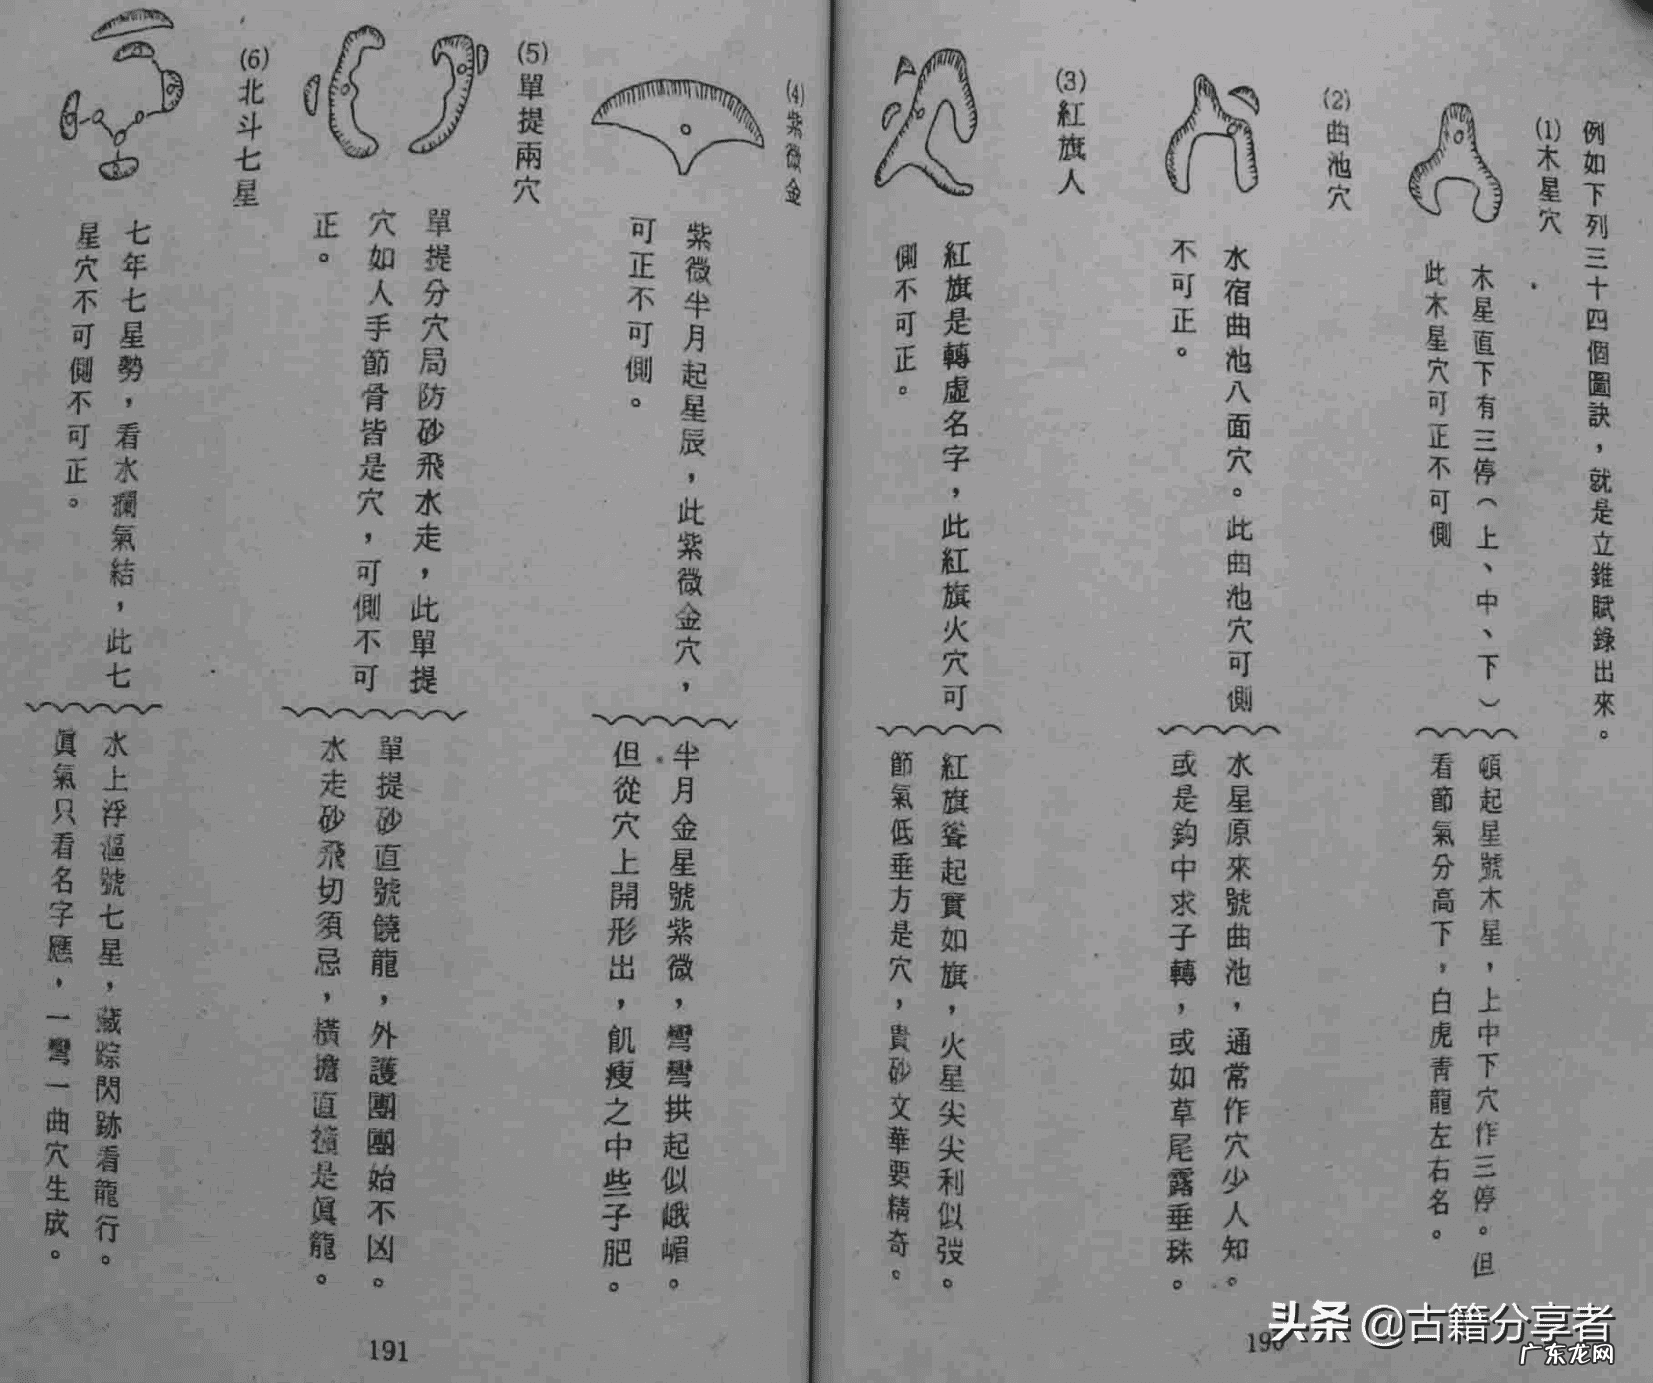 例如下列三十四個圖訣，就是立錐賦錄出來。
(1)木星穴
木星直下有三停（上、中、下）
此木星穴可正不可側
頓起星號木星，上中下穴作三停。但
看節氣分高下，白虎靑龍左右名。
(2)曲池穴
水宿曲池八面穴。此曲池穴可側
不可正。
水星原來號曲池，通常作穴少人知。
或是鈎中求子轉，或如草尾露垂珠。
(3)紅旗人
紅旗是轉虛名字，此紅旗火穴可
側不可正。
紅旗聳起實如旗，火星尖尖利似
節氣低垂方是穴，貴砂文華要精奇。
190
(4)紫微金
紫微半月起星辰，此紫微金穴，
可正不可側。
半月金星號紫微，彎彎拱起似峨嵋。
但從穴上開形出，飢瘦之中些子肥。
(5)單提兩穴
單提分穴局防砂飛水走，此單提
穴如人手節骨皆是穴，可側不可
正。
單提砂直號饒龍，外護團團始不凶。
水走砂飛切須忌，橫擔直是眞龍。
(6)北斗七星
七年七星勢，看水瀾氣結，此七
星穴不可側不可正。
水上浮漚號七星，藏踪閃跡看龍行。
眞氣只看名字應，一彎一曲穴生成。
191
头条 @古籍分享者
广东龙网